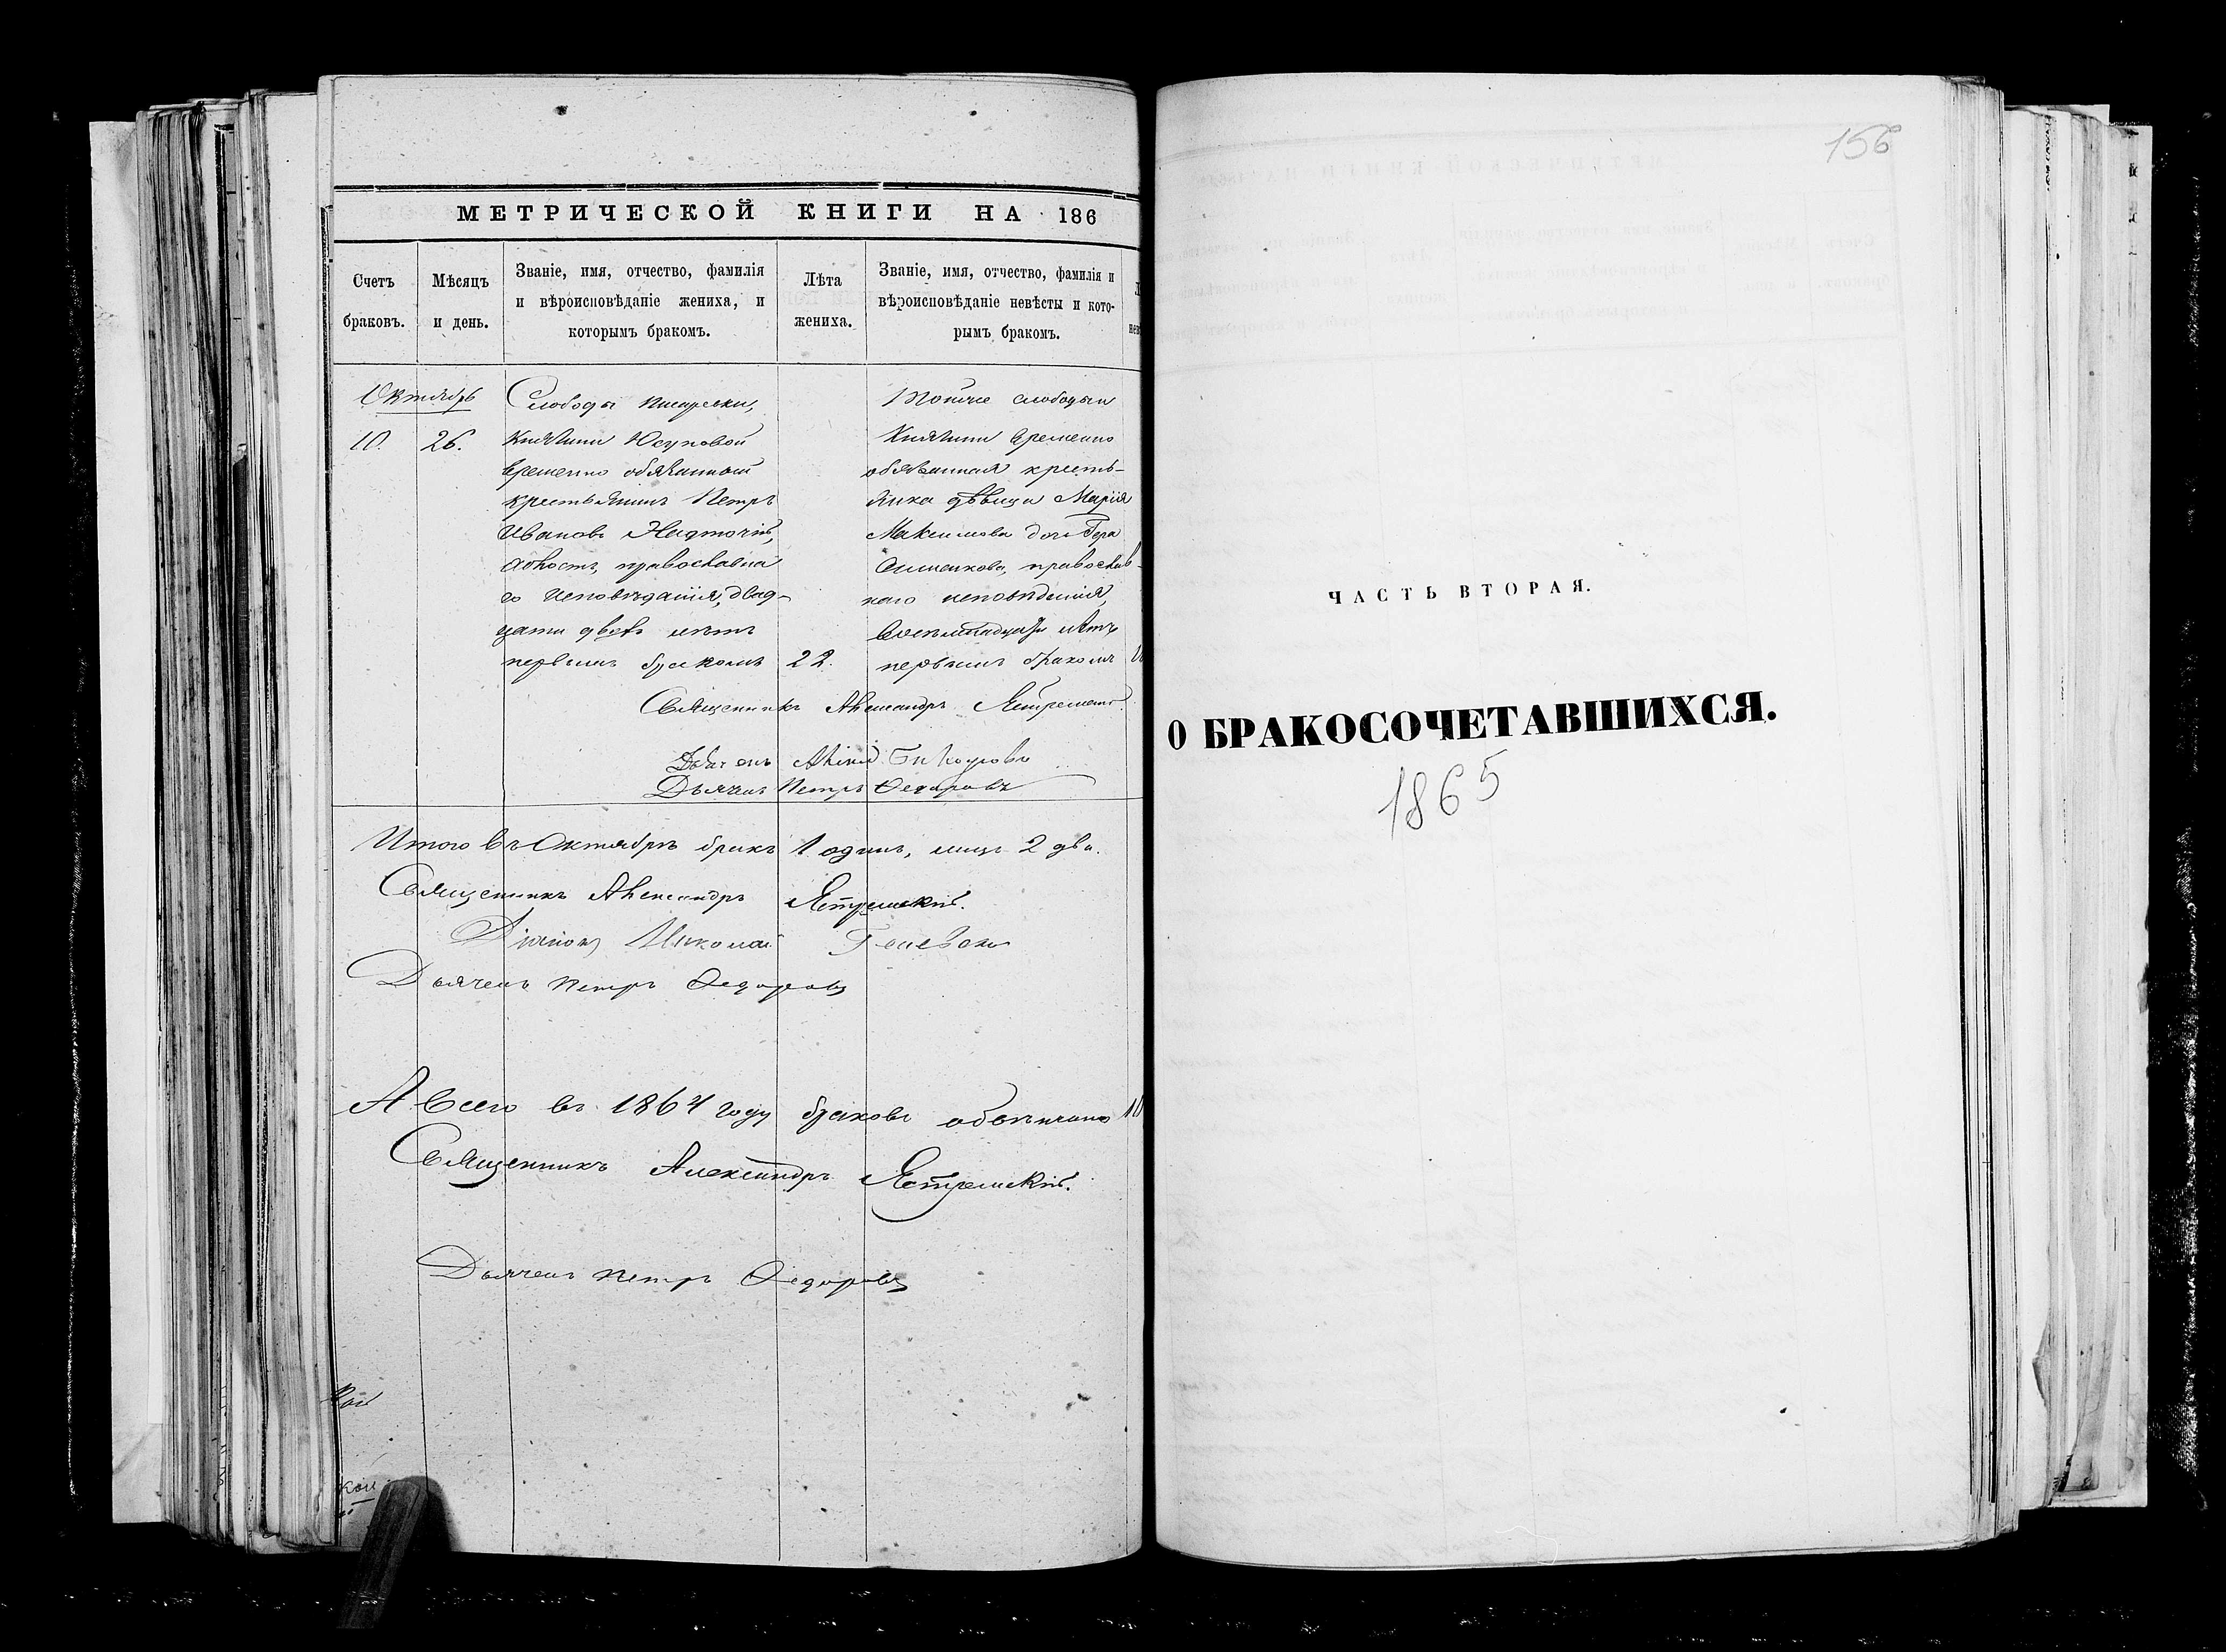 МЕТРИЧЕСКОЙ КНИГИ НА 186
Счетъ браковъ.
Мѣсяцъ и день.
Званіе, имя, отчество, фамилія
и вѣроисповѣданіе жениха, и
которымъ бракомъ.
Лѣта
жениха.
Званіе, имя, отчество, фамилія и
вѣроисповѣданіе невѣсты и кото-
рымъ бракомъ.
Октябрь
10. 26.
Слобода Писаревки,
Княгини Юсуповой
временно обязанный
крестьянинъ Петръ
Ивановъ
православна
го исповѣданія, двад-
цати двухъ лѣтъ
первымъ бракомъ
22.
Тойже слободы
Княгини временно
обязанная кресть-
янка дѣвица Марія
Максимова дочь Гера
сименкова, православ-
наго исповѣданія,
восемнадцати лѣтъ
первымъ бракомъ
Священникъ Александръ
Дьячекъ Петръ Федоровъ
Итого въ Октябрѣ бракъ 1 одинъ, лицъ 2 два.
Священникъ Александръ Ястремскій.
Діаконъ Николай
Дьячекъ Петръ Федоровъ
А всего въ 1864 году браковъ обвѣнчано 10
Священникъ Александръ Ястремскій.
Дьячекъ Петръ Федоровъ
кой
156
ЧАСТЬ ВТОРАЯ.
О БРАКОСОЧЕТАВШИХСЯ.
1865